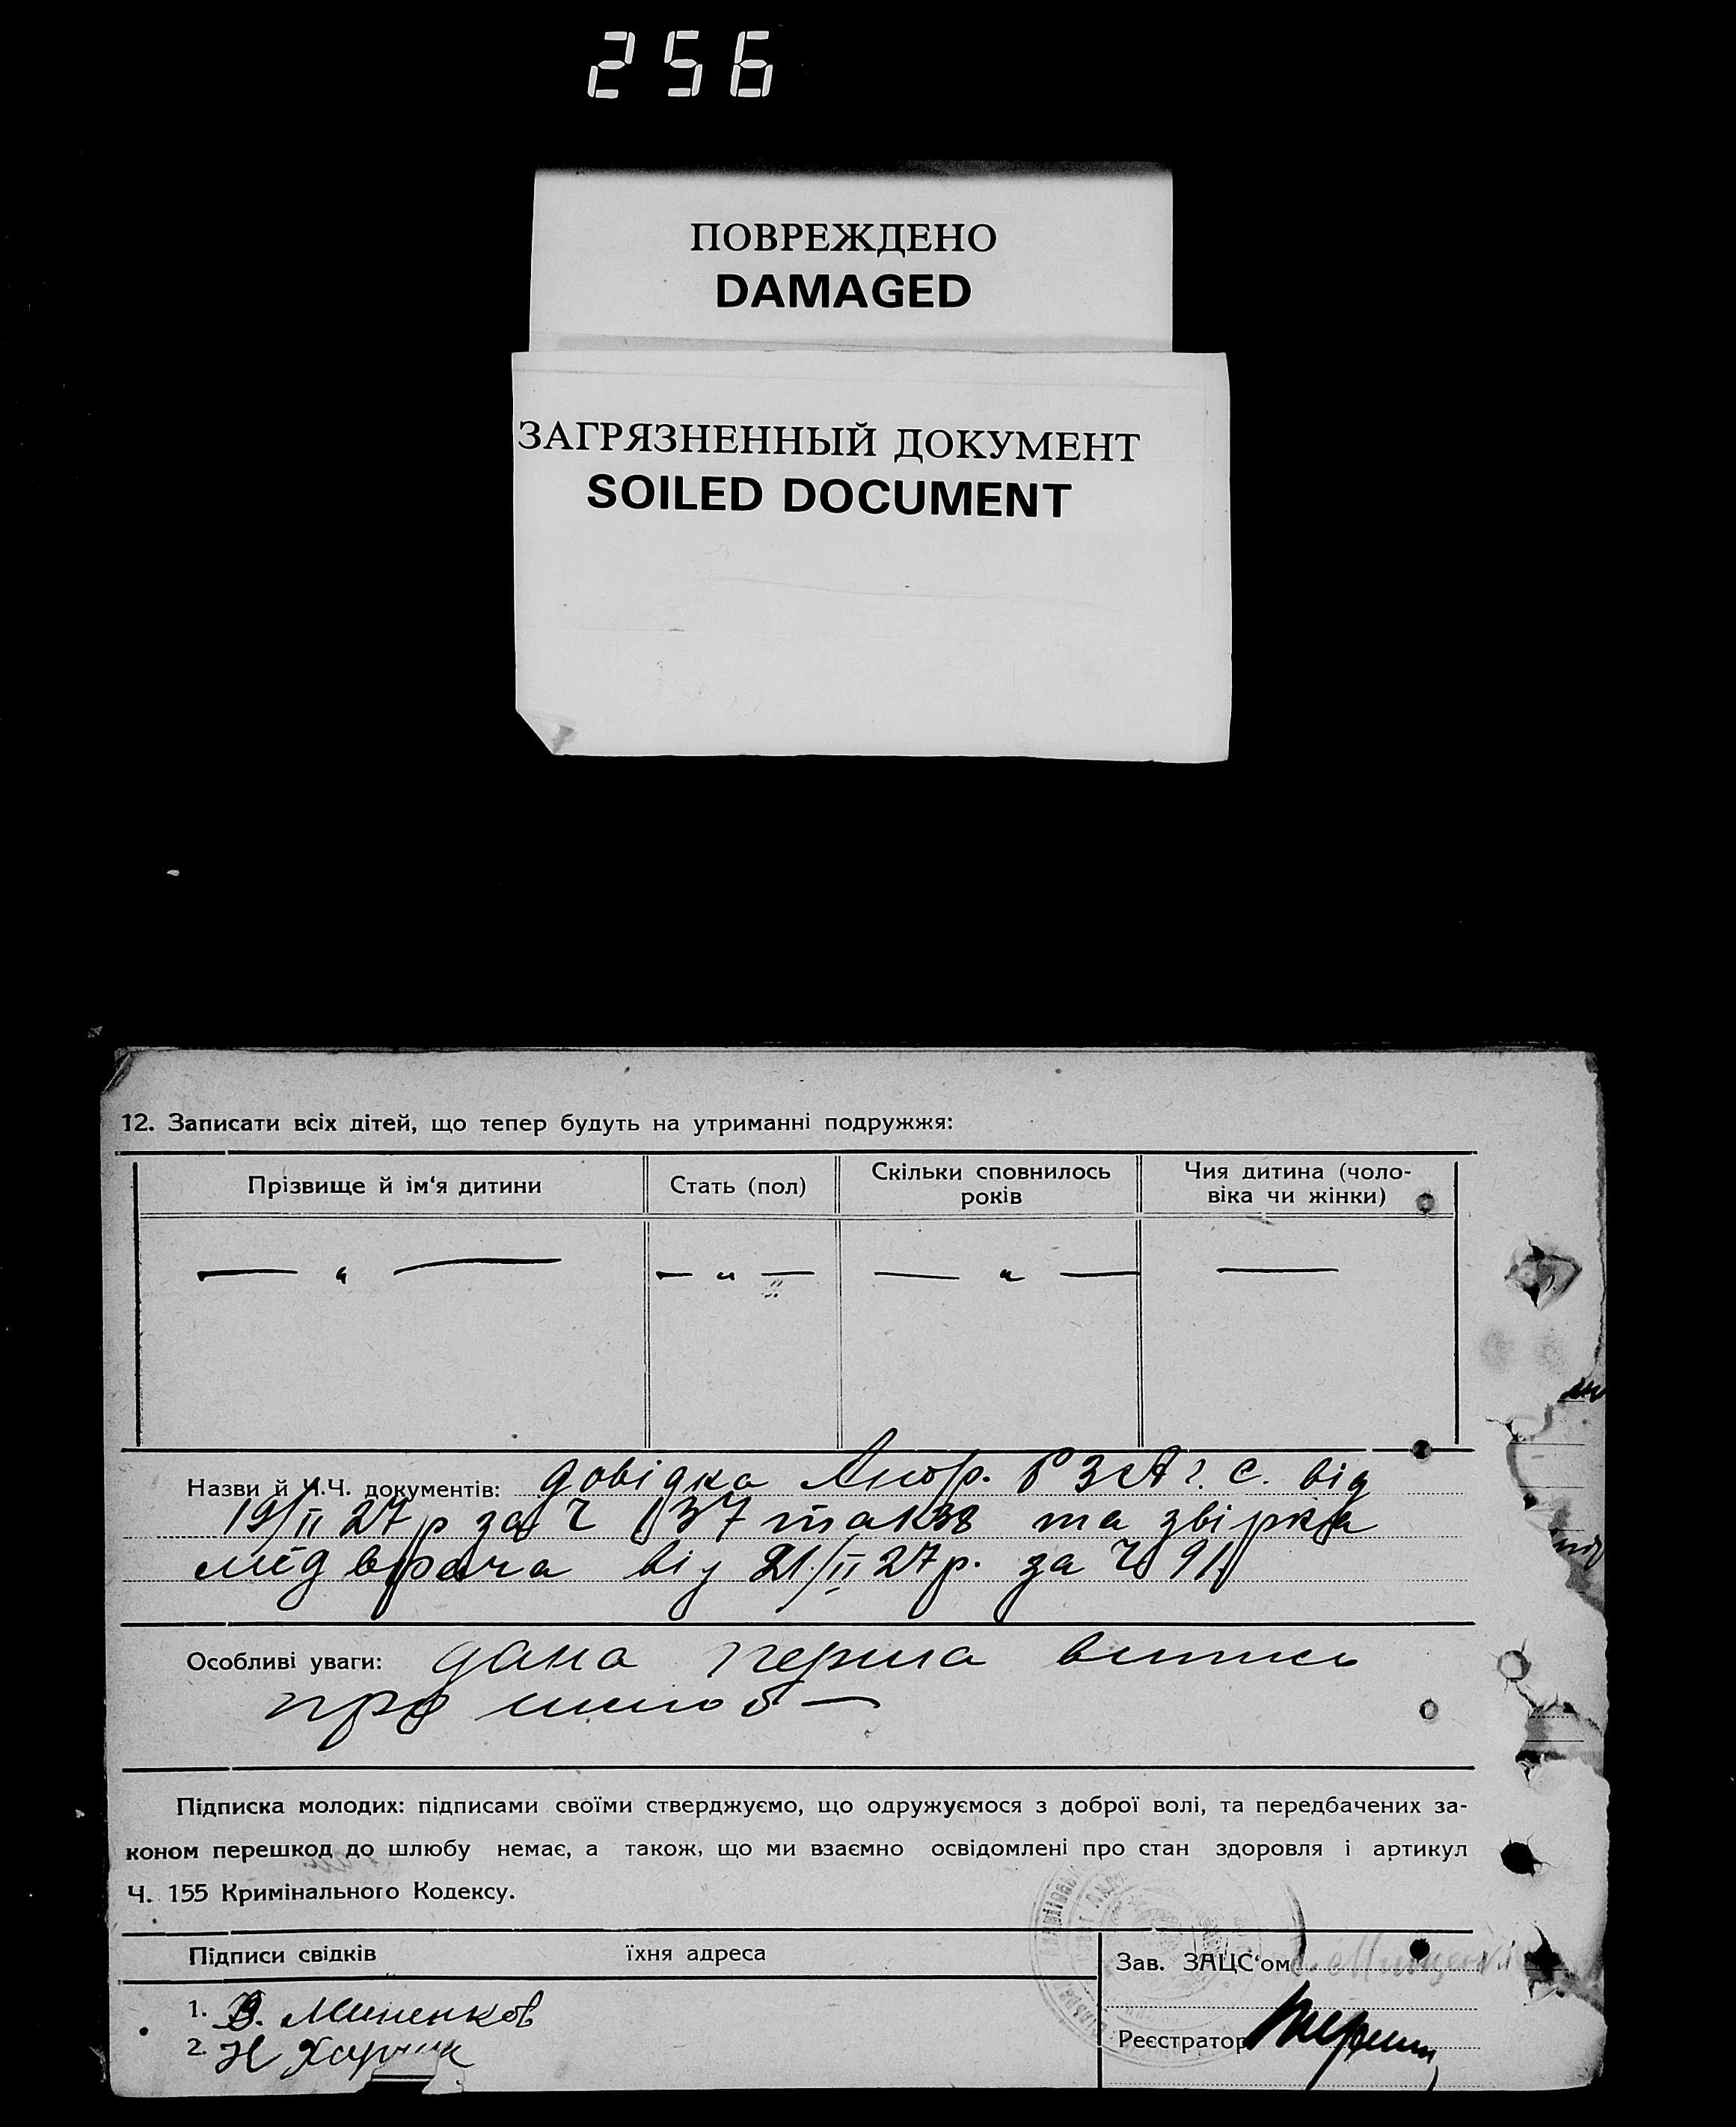 256
ПОВРЕЖДЕНО
DAMAGED
ЗАГРЯЗНЕННЫЙ ДОКУМЕНТ
SOILED DOCUMENT
12. Записати всіх дітей, що тепер будуть на утриманні подружжя:
Прізвище й ім'я дитини
Стать (пол)
Скільки сповнилось років
Чия дитина (чоло-
віка чи жінки)
— „ — — „ — — „ — —
Назви й Ч.Ч. документів: довідка від
19/II 27 р за Ч 137 та звірка
мед врача від 21/II 27 р. за Ч 91
Особливі уваги: дана перша випись
про шлюб —
Підписка молодих: підписами своїми стверджуємо, що одружуємося з доброї волі, та передбачених за-
коном перешкод до шлюбу немає, а також, що ми взаємно освідомлені про стан здоровля і артикул
Ч. 155 Кримінального Кодексу.
Підписи свідків їхня адреса
Зав. ЗАЦС'ом
1. В. Миненков
2. Н
Реєстратор